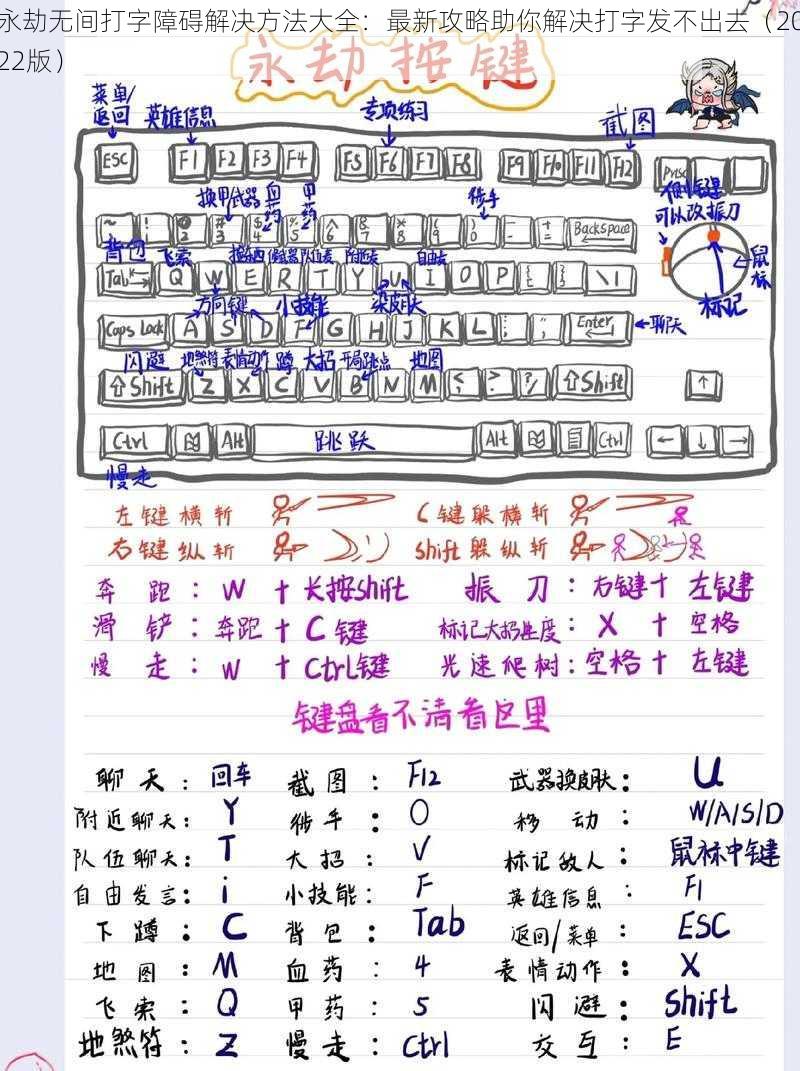 永劫无间打字障碍解决方法大全：最新攻略助你解决打字发不出去（20
22版）
永劫按键
菜单/
返回 英雄信息 专项练习 截图
ESC F1 F2 F3 F4 F5 F6 F7 F8 F9 F10 F11 F12 PrtSc
换甲 武器 血药 甲药 徒手
侧键
可以改振刀
~ ! 2 # 3 $ 4 % 5 ^ 6 & 7 * 8 ( 9 ) 0 - + = Backspace
背包 飞索 队伍 附近 自由
鼠标
Tab Q W E R T Y U I O P { [ } ] \ |
标记
方向键 小技能 皮肤
Caps Lock A S D F G H J K L ; ; Enter 聊天
闪避 地煞符 表情动作 蹲 大招 开局跳点 地图
⇧Shift Z X C V B N M < ? ?/ ⇧Shift ↑
Ctrl Alt 跳跃 Alt Ctrl ← ↓ →
慢走
左键横斩 C键躲横斩
右键纵斩 shift躲纵斩
奔跑：W + 长按shift 振刀：右键 + 左键
滑铲：奔跑 + C键 标记大招进度：X + 空格
慢走：W + Ctrl键 光速爬树：空格 + 左键
键盘看不清看这里
聊天：回车 截图：F12 武器换皮肤：U
附近聊天：Y 徒手：0 移动：W/A/S/D
队伍聊天：T 大招：V 标记敌人：鼠标中键
自由发言：i 小技能：F 英雄信息：F1
下蹲：C 背包：Tab 返回/菜单：ESC
地图：M 血药：4 表情动作：X
飞索：Q 甲药：5 闪避：Shift
地煞符：Z 慢走：Ctrl 交互：E